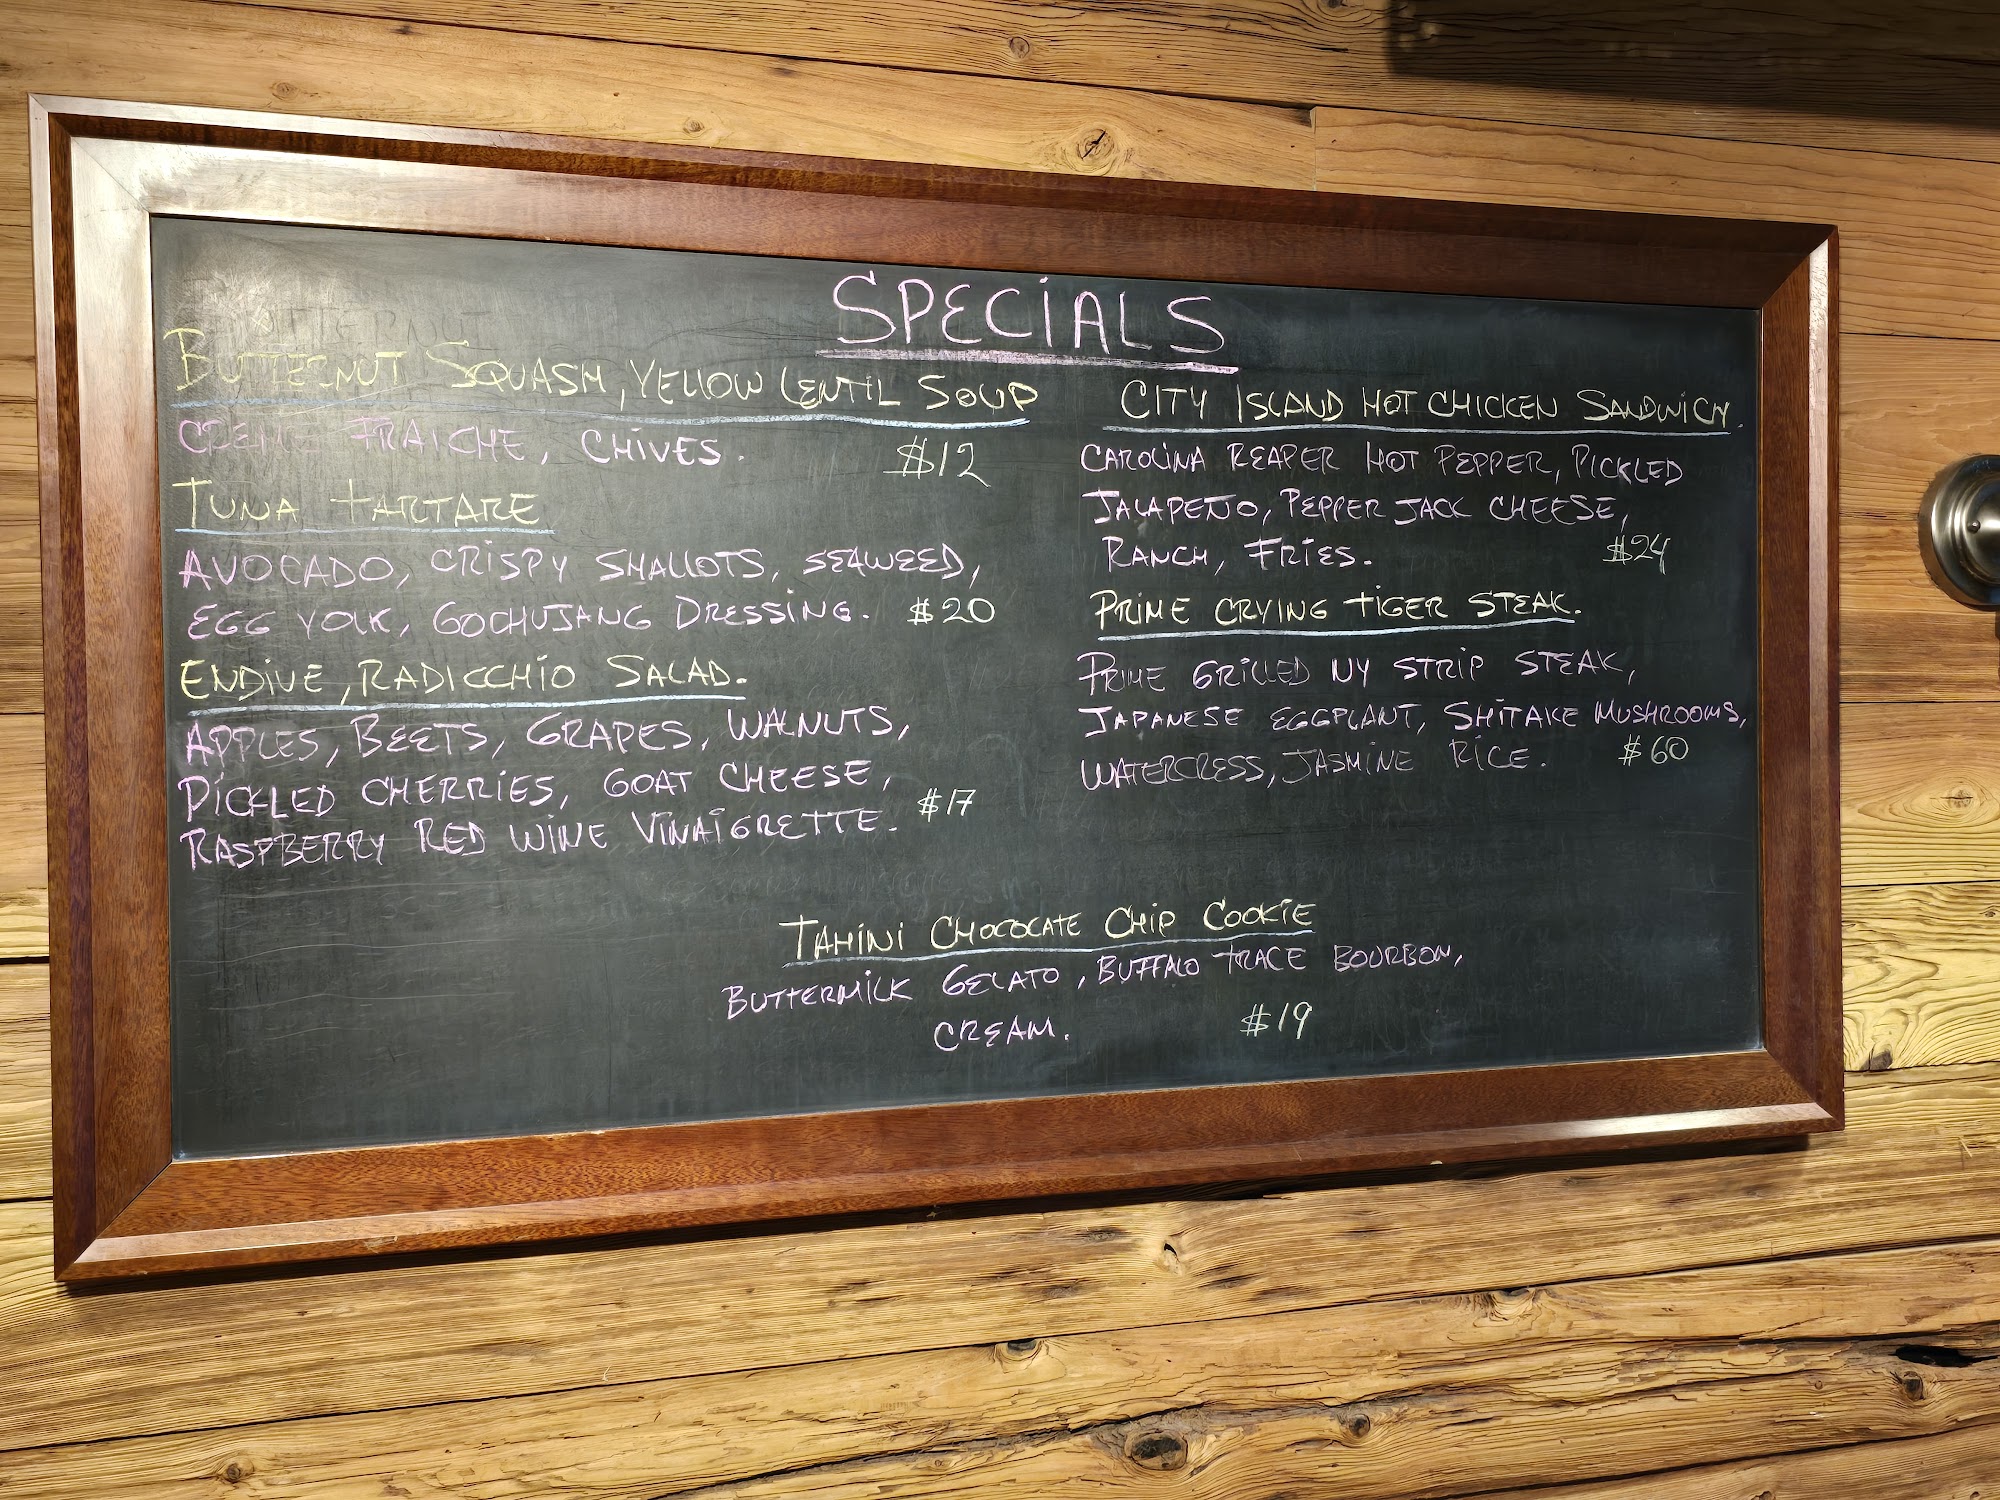 SPECIALS
BUTTERNUT SQUASH, YELLOW LENTIL SOUP
CREME FRAICHE, CHIVES. $12
TUNA TARTARE
AVOCADO, CRISPY SHALLOTS, SEAWEED,
EGG YOLK, GOCHUJANG DRESSING. $20
ENDIVE, RADICCHIO SALAD.
APPLES, BEETS, GRAPES, WALNUTS,
PICKLED CHERRIES, GOAT CHEESE,
RASPBERRY RED WINE VINAIGRETTE. $17
CITY ISLAND HOT CHICKEN SANDWICH.
CAROLINA REAPER HOT PEPPER, PICKLED
JALAPEÑO, PEPPER JACK CHEESE,
RANCH, FRIES. $24
PRIME CRYING TIGER STEAK.
PRIME GRILLED NY STRIP STEAK,
JAPANESE EGGPLANT, SHITAKE MUSHROOMS,
WATERCRESS, JASMINE RICE. $60
TAHINI CHOCOLATE CHIP COOKIE
BUTTERMILK GELATO, BUFFALO TRACE BOURBON,
CREAM. $19